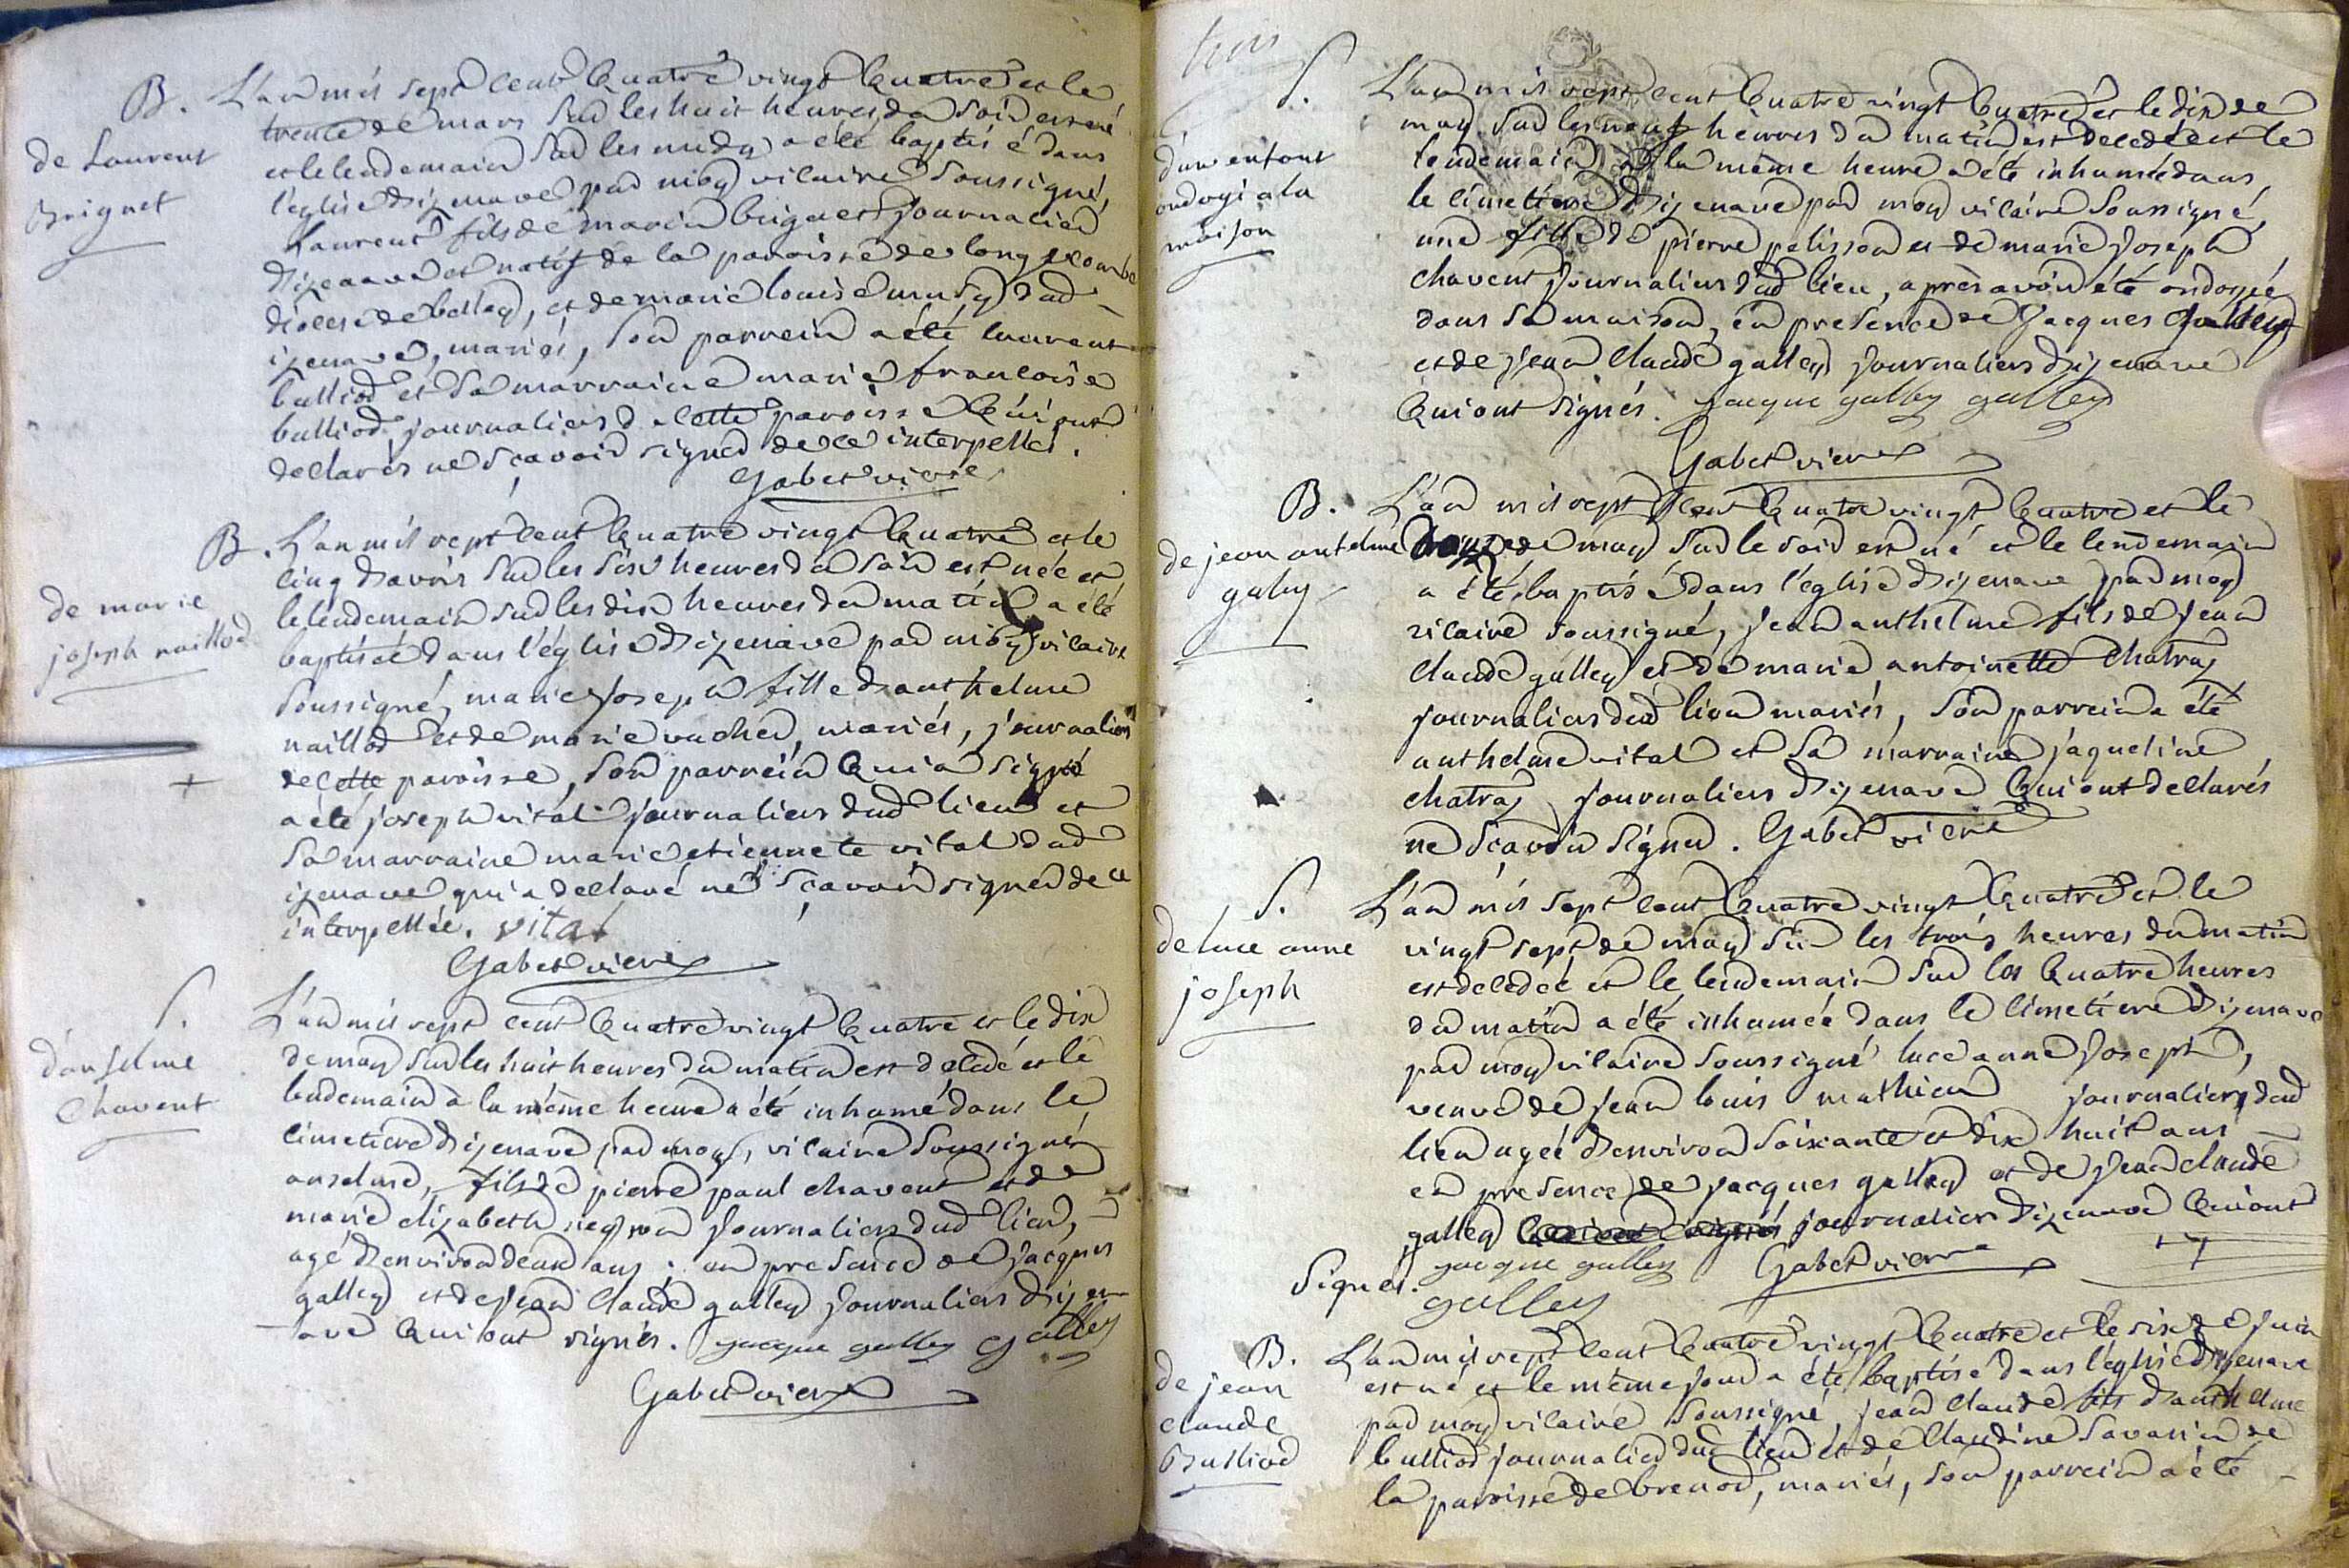 B. L'an mil sept cent quatre vingt quatre et le
trente de mars sur les huit heures du soir est né
et le lendemain sur les midy a été baptisé dans
de Laurent
Briguet
l'église d'izenave par moy vicaire soussigné,
Laurent fils de marin briguet journalier
d'izenave et natif de la paroisse de long
diocese de belley, et de marie louise musy dud
izenave, mariés, son parrein a été laurent
bulliod et sa marraine marie francoise
bulliod, journaliers de cette paroisse qui ont
declarés ne sçavoir signer de ce interpellés.
Gabet vicre
B. L'an mil sept cent quatre vingt quatre et le
cinq d'avris sur les six heures du soir est née et
de marie
joseph naillod
le lendemain sur les dix heures du matin a été
baptisée dans l'église d'izenave par moy vicaire
soussigné, marie joseph fille d'anthelme
naillod et de marie vucher, mariés, journaliers
de cette paroisse, son parrein qui a signé
a été joseph vital journaliers dud lieu et
sa marraine marie etiennete vital dud
izenave qui a declaré ne sçavoir signer de ce
interpellée. vital
Gabet vicre
S. L'an mil sept cent quatre vingt quatre et le dix
d'anselme
chavent
de may sur les huit heures du matin est decedé et le
lendemain à la même heure a été inhumé dans le
cimetiere d'izenave par moy, vicaire soussigné
anselme, fils de pierre paul chavent et de
marie elizabeth journaliers dud lieu,
agé d'environ deux ans : en presence de jacques
galley et de jean claude galley journaliers d'izen
ave qui ont signés. jacque galley galley
Gabet vicre
trois
S. L'an mil sept cent quatre vingt quatre et le dix de
d'un enfant
ondoyé a la
maison
may sur les neuf heures du matin est decedée et le
lendemain à la même heure a été inhumée dans
le cimetiere d'izenave par moy vicaire soussigné,
une fille de pierre pelisson et de marie joseph
chavent journaliers dud lieu, après avoir été ondoyée
dans sa maison, en presence de jacques galley
et de jean claude galley journaliers d'izenave
qui ont signés. jacque galley galley
Gabet vicre
B. L'an mil sept cent quatre vingt quatre et le
de jean antelme
galey
de may sur le soir est né et le lendemain
a été baptisé dans l'église d'izenave par moy
vicaire soussigné, jean anthelme fils de jean
claude galley et de marie antoinette chatray
journaliers dud lieu mariés, son parrein a été
anthelme vital et sa marraine jaqueline
chatray journaliers d'izenave qui ont declarés
ne scavoir signer. Gabet vicre
S. L'an mil sept cent quatre vingt quatre et le
de luce anne
joseph
vingt sept de may sur les trois heures du matin
est decedée et le lendemain sur les quatre heures
du matin a été inhumée dans le cimetiere d'izenave
par moy vicaire soussigné luce anne joseph,
veuve de jean louis mathieu journaliers dud
lieu agée d'environ soixante et dix huit ans
en presence de jacques galley et de jean claude
galley journaliers d'izenave qui ont
signés. jacque galley Gabet vicre
galley
B. L'an mil sept cent quatre vingt quatre et le six de juin
de jean
claude
Bulliod
est né et le même jour a été baptisé dans l'église d'izenave
par moy vicaire soussigné, jean claude fils d'anthelme
bulliod journalier dud lieu et de claudine savarin de
la paroisse de brenod, mariés, son parrein a été